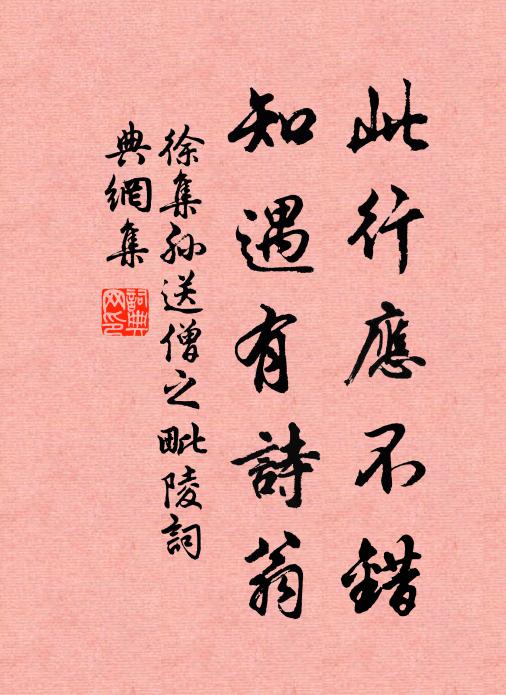 此行應不錯
知遇有詩翁
徐集孫送僧之毗陵詞
典網集
詞典
网印